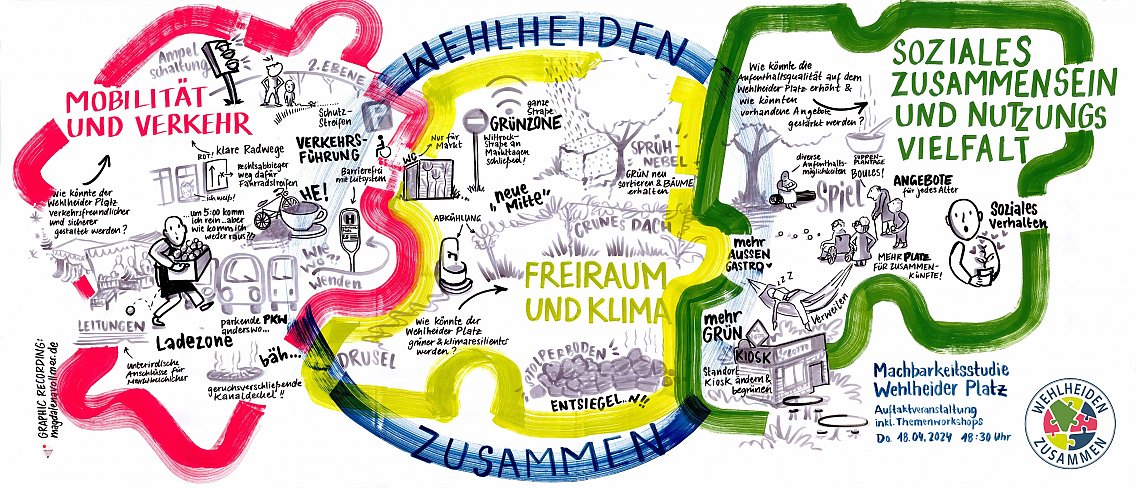 WEHLHEIDEN
Ampel
schaltung
2. EBENE
MOBILITÄT
UND VERKEHR
Schutz-
Streifen
P
klare Radwege
VERKEHRS-
FÜHRUNG
ROT:
Rechtsabbieger
weg dafür
Fahrradstreifen
ich weiß!
HE!
Barrierefrei
mit Leitsystem
Wie könnte der
Wehlheider Platz
verkehrsfreundlicher
und sicherer
gestaltet werden?
um 5:00 komm
ich rein... aber
wie komm ich
wieder raus?!?
H
WIE
WO
wenden
parkende PKW
anderswo...
LEITUNGEN
Ladezone
unterirdische
Anschlüsse für
Marktreichlicher
bäh...
geruchsverschließende
Kanaldeckel!!
GRAPHIC RECORDING:
magdalenavollmer.de
Nur für
Markt
WC
ganze
Straße
GRÜNZONE
Wittrock-
Straße an
Markttagen
schließen!
SPRÜH-
NEBEL
GRÜN neu
sortieren & BÄUME
erhalten
„neue
Mitte"
ABKÜHLUNG
GRÜNES DACH
FREIRAUM
UND KLIMA
Wie könnte der
Wehlheider Platz
grüner & klimaresilienter
werden?
DRUSEL
STOLPERBODEN
ENTSIEGEL..N!!
ZUSAMMEN
SOZIALES
ZUSAMMENSEIN
UND NUTZUNGS
VIELFALT
Wie könnten die
Aufenthaltsqualität auf dem
Wehlheider Platz erhöht &
wie könnten
vorhandene Angebote
gestärkt werden?
diverse
Aufenthalts-
möglichkeiten
SUPPEN-
PLANTAGE
BOULES!
SPIEL
ANGEBOTE
für jedes Alter
Soziales
Verhalten
MEHR PLATZ
FÜR ZUSAMMEN-
KÜNFTE!
mehr
AUSSEN
GASTRO
ZZ
Verweilen
mehr
GRÜN
KIOSK
LOTTO
Standort
Kiosk ändern &
begrünen
Machbarkeitsstudie
Wehlheider Platz
Auftaktveranstaltung
inkl. Themenworkshops
Do. 18.04.2024 18:30 Uhr
WEHLHEIDEN
ZUSAMMEN